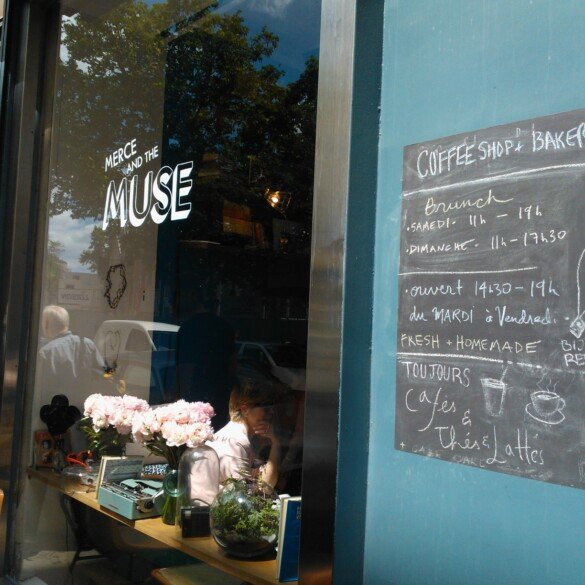 MERCE
AND THE
MUSE
COFFEE SHOP + BAKER
Brunch
• SAMEDI - 11h - 19h
• DIMANCHE - 11h - 17h30
• ouvert 14h30 - 19h
du MARDI à Vendredi
FRESH + HOMEMADE
TOUJOURS
Cafés
&
Thés & Lattés